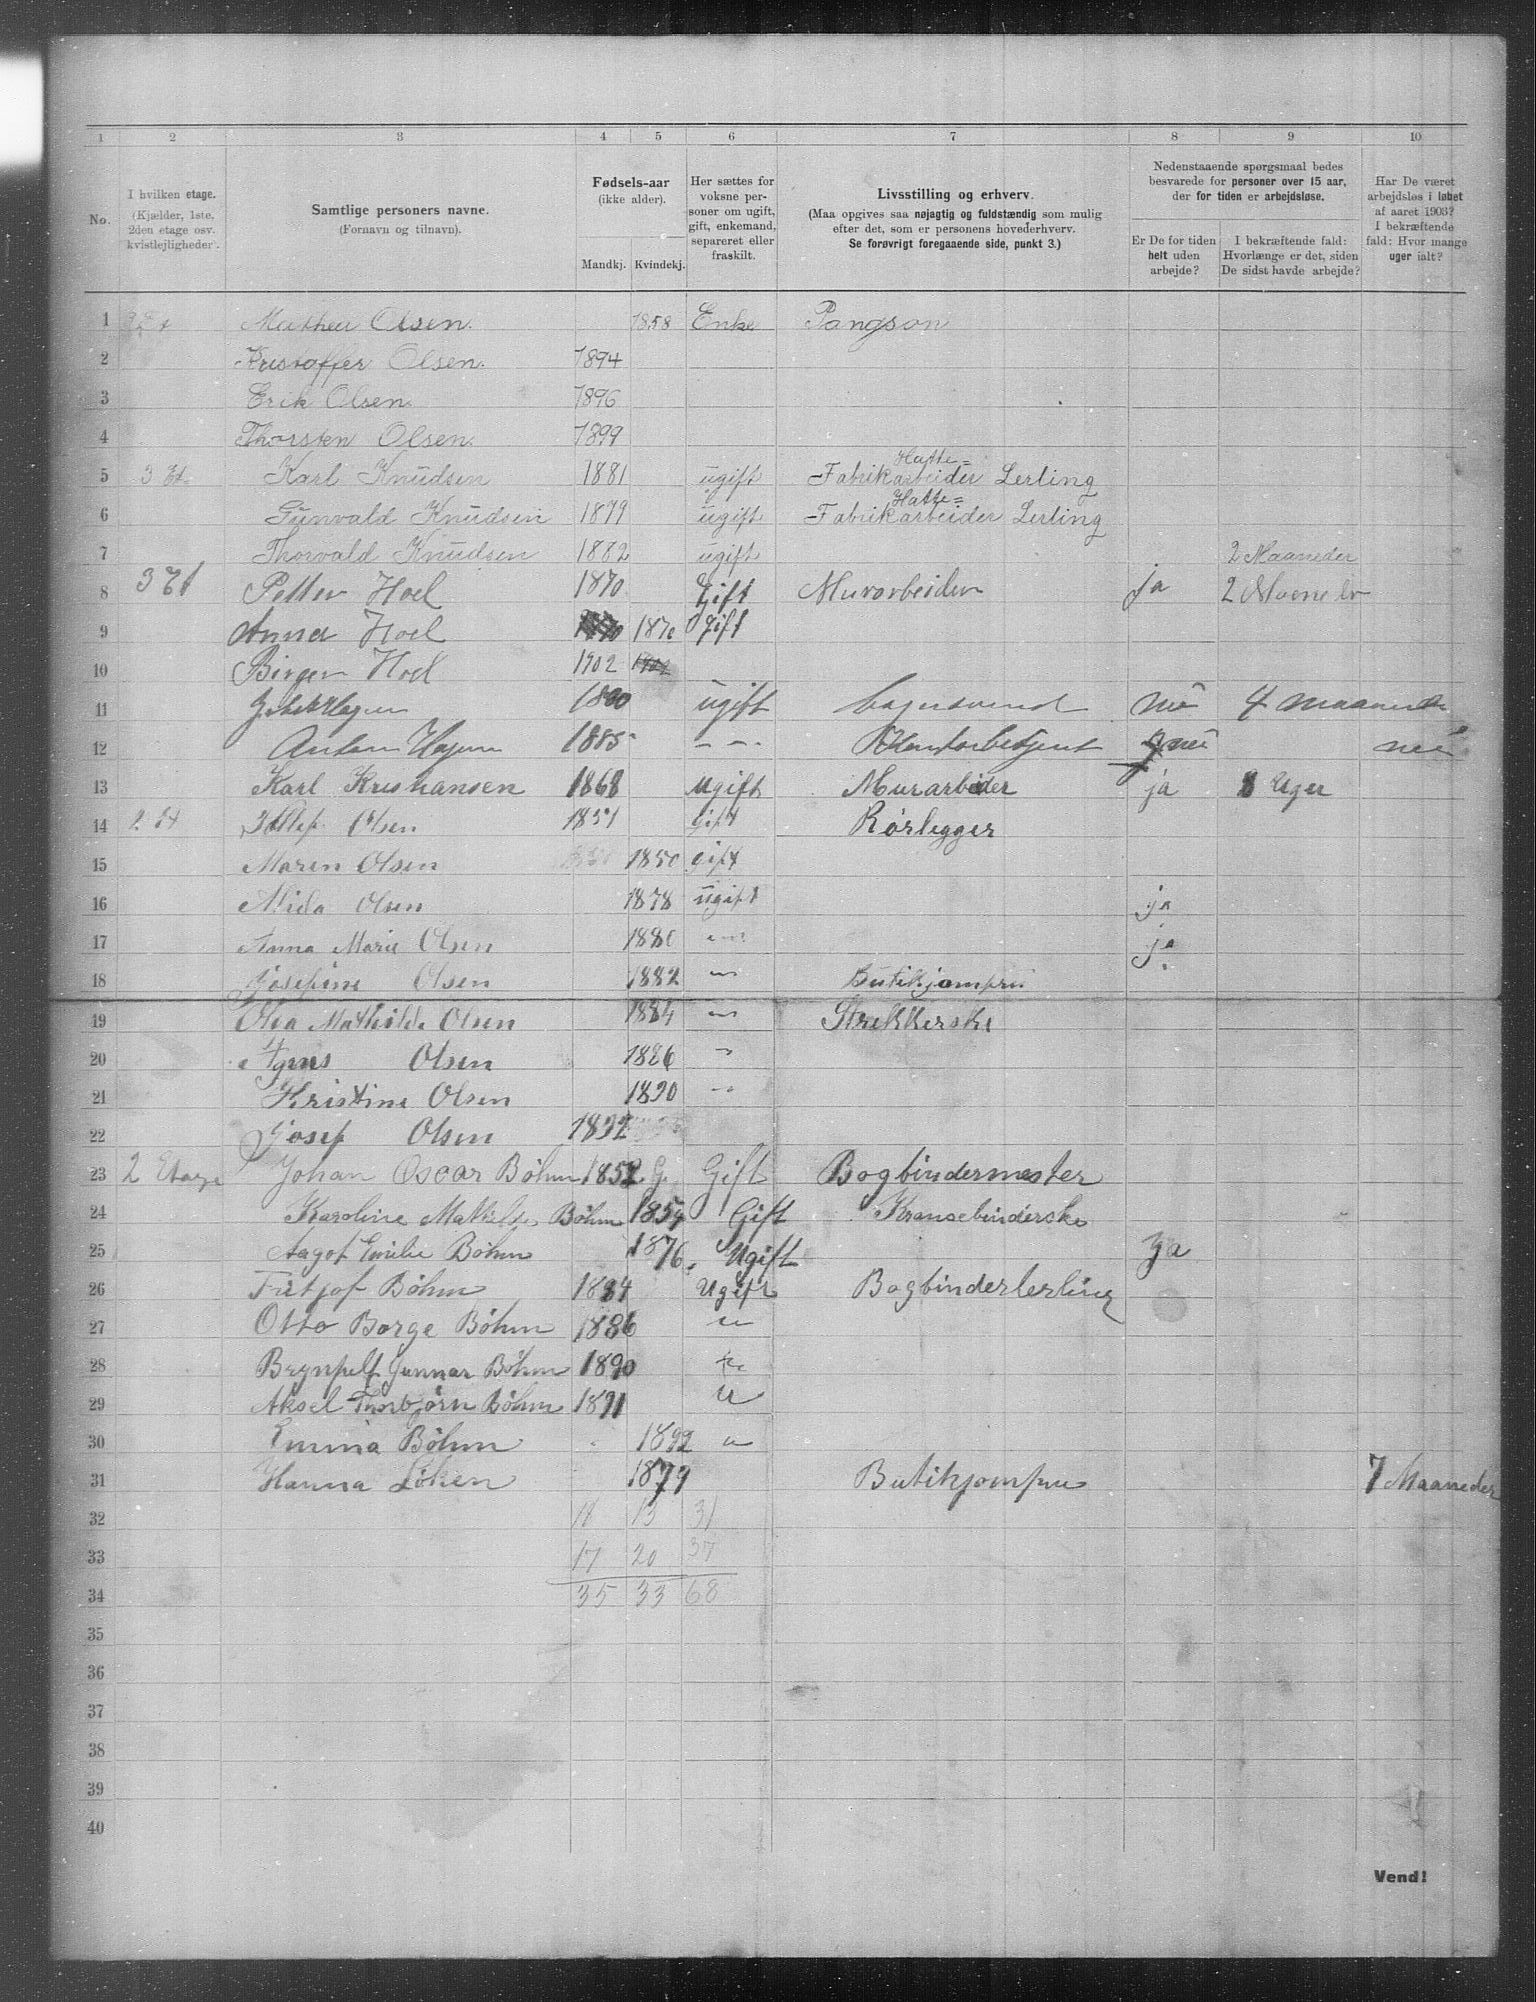 1 2 3 4 5 6 7 8 9 10
No.
I hvilken etage.
(Kjælder, 1ste,
2den etage osv.
kvistlejligheder).
Samtlige personers navne.
(Fornavn og tilnavn).
Fødsels-aar
(ikke alder).
Mandkj. Kvindekj.
Her sættes for
voksne per-
soner om ugift,
gift, enkemand,
separeret eller
fraskilt.
Livsstilling og erhverv.
(Maa opgives saa nøjagtig og fuldstændig som mulig
efter det, som er personens hovederhverv.
Se forøvrigt foregaaende side, punkt 3.)
Nedenstaaende spørgsmaal bedes
besvarede for personer over 15 aar,
der for tiden er arbejdsløse.
Er De for tiden
helt uden
arbejde?
I bekræftende fald:
Hvorlænge er det, siden
De sidst havde arbejde?
Har De været
arbejdsløs i løbet
af aaret 1903?
I bekræftende
fald: Hvor mange
uger ialt?
1 Mathea Olsen. 1858 Enke Pangson
2 Kristoffer Olsen. 1894
3 Erik Olsen 1896
4 Thorsten Olsen. 1899
5 3 Et. Karl Knudsen 1881 ugift Fabrikarbeider Hatte= Lerling
6 Gunvald Knudsen 1879 ugift Fabrikarbeider Hatte= Lerling
7 Thorvald Knudsen 1882 ugift 2 Maaneder
8 3 Et Petter Hoel 1870 Gift Murarbeider ja 2
9 Anna Hoel 1870 gift
10 Birger Hoel 1902
11 1880 ugift nei 4
12 Anton Hagen 1885 - - - nei nei
13 Karl Kristiansen 1868 Ugift Murarbeider ja 8 Uger
14 2 Et Olsen 1851 Gift Rørlegger
15 Maren Olsen 1850 gift
16 Alida Olsen 1878 ugift ja
17 Anna Marie Olsen 1880 — ja
18 Josefine Olsen 1882 — Butikjomfru
19 Olga Mathilde Olsen 1884 — Strikkerske
20 Agnes Olsen 1886 "
21 Kristine Olsen 1890 "
22 Josef Olsen 1892
23 2 Etage Johan Oscar Bøhm 1852 G. Gift Bogbindermester
24 Karoline Mathilde Bøhm 1854 Gift Kransebinderske
25 Aagot Emilie Bøhm 1876. Ugift ja
26 Fritjof Bøhm 1884 Ugift Bogbinderlerling
27 Otto Borge Bøhm 1886 "
28 Brynjulf Gunnar Bøhm 1890 "
29 Aksel Thorbjørn Bøhm 1891 "
30 Emma Bøhm 1892 "
31 Hanna Løken 1879 Butikjomfru 7 Maaneder
32 18 13 31
33 17 20 37
34 35 33 68
35
36
37
38
39
40
Vend!